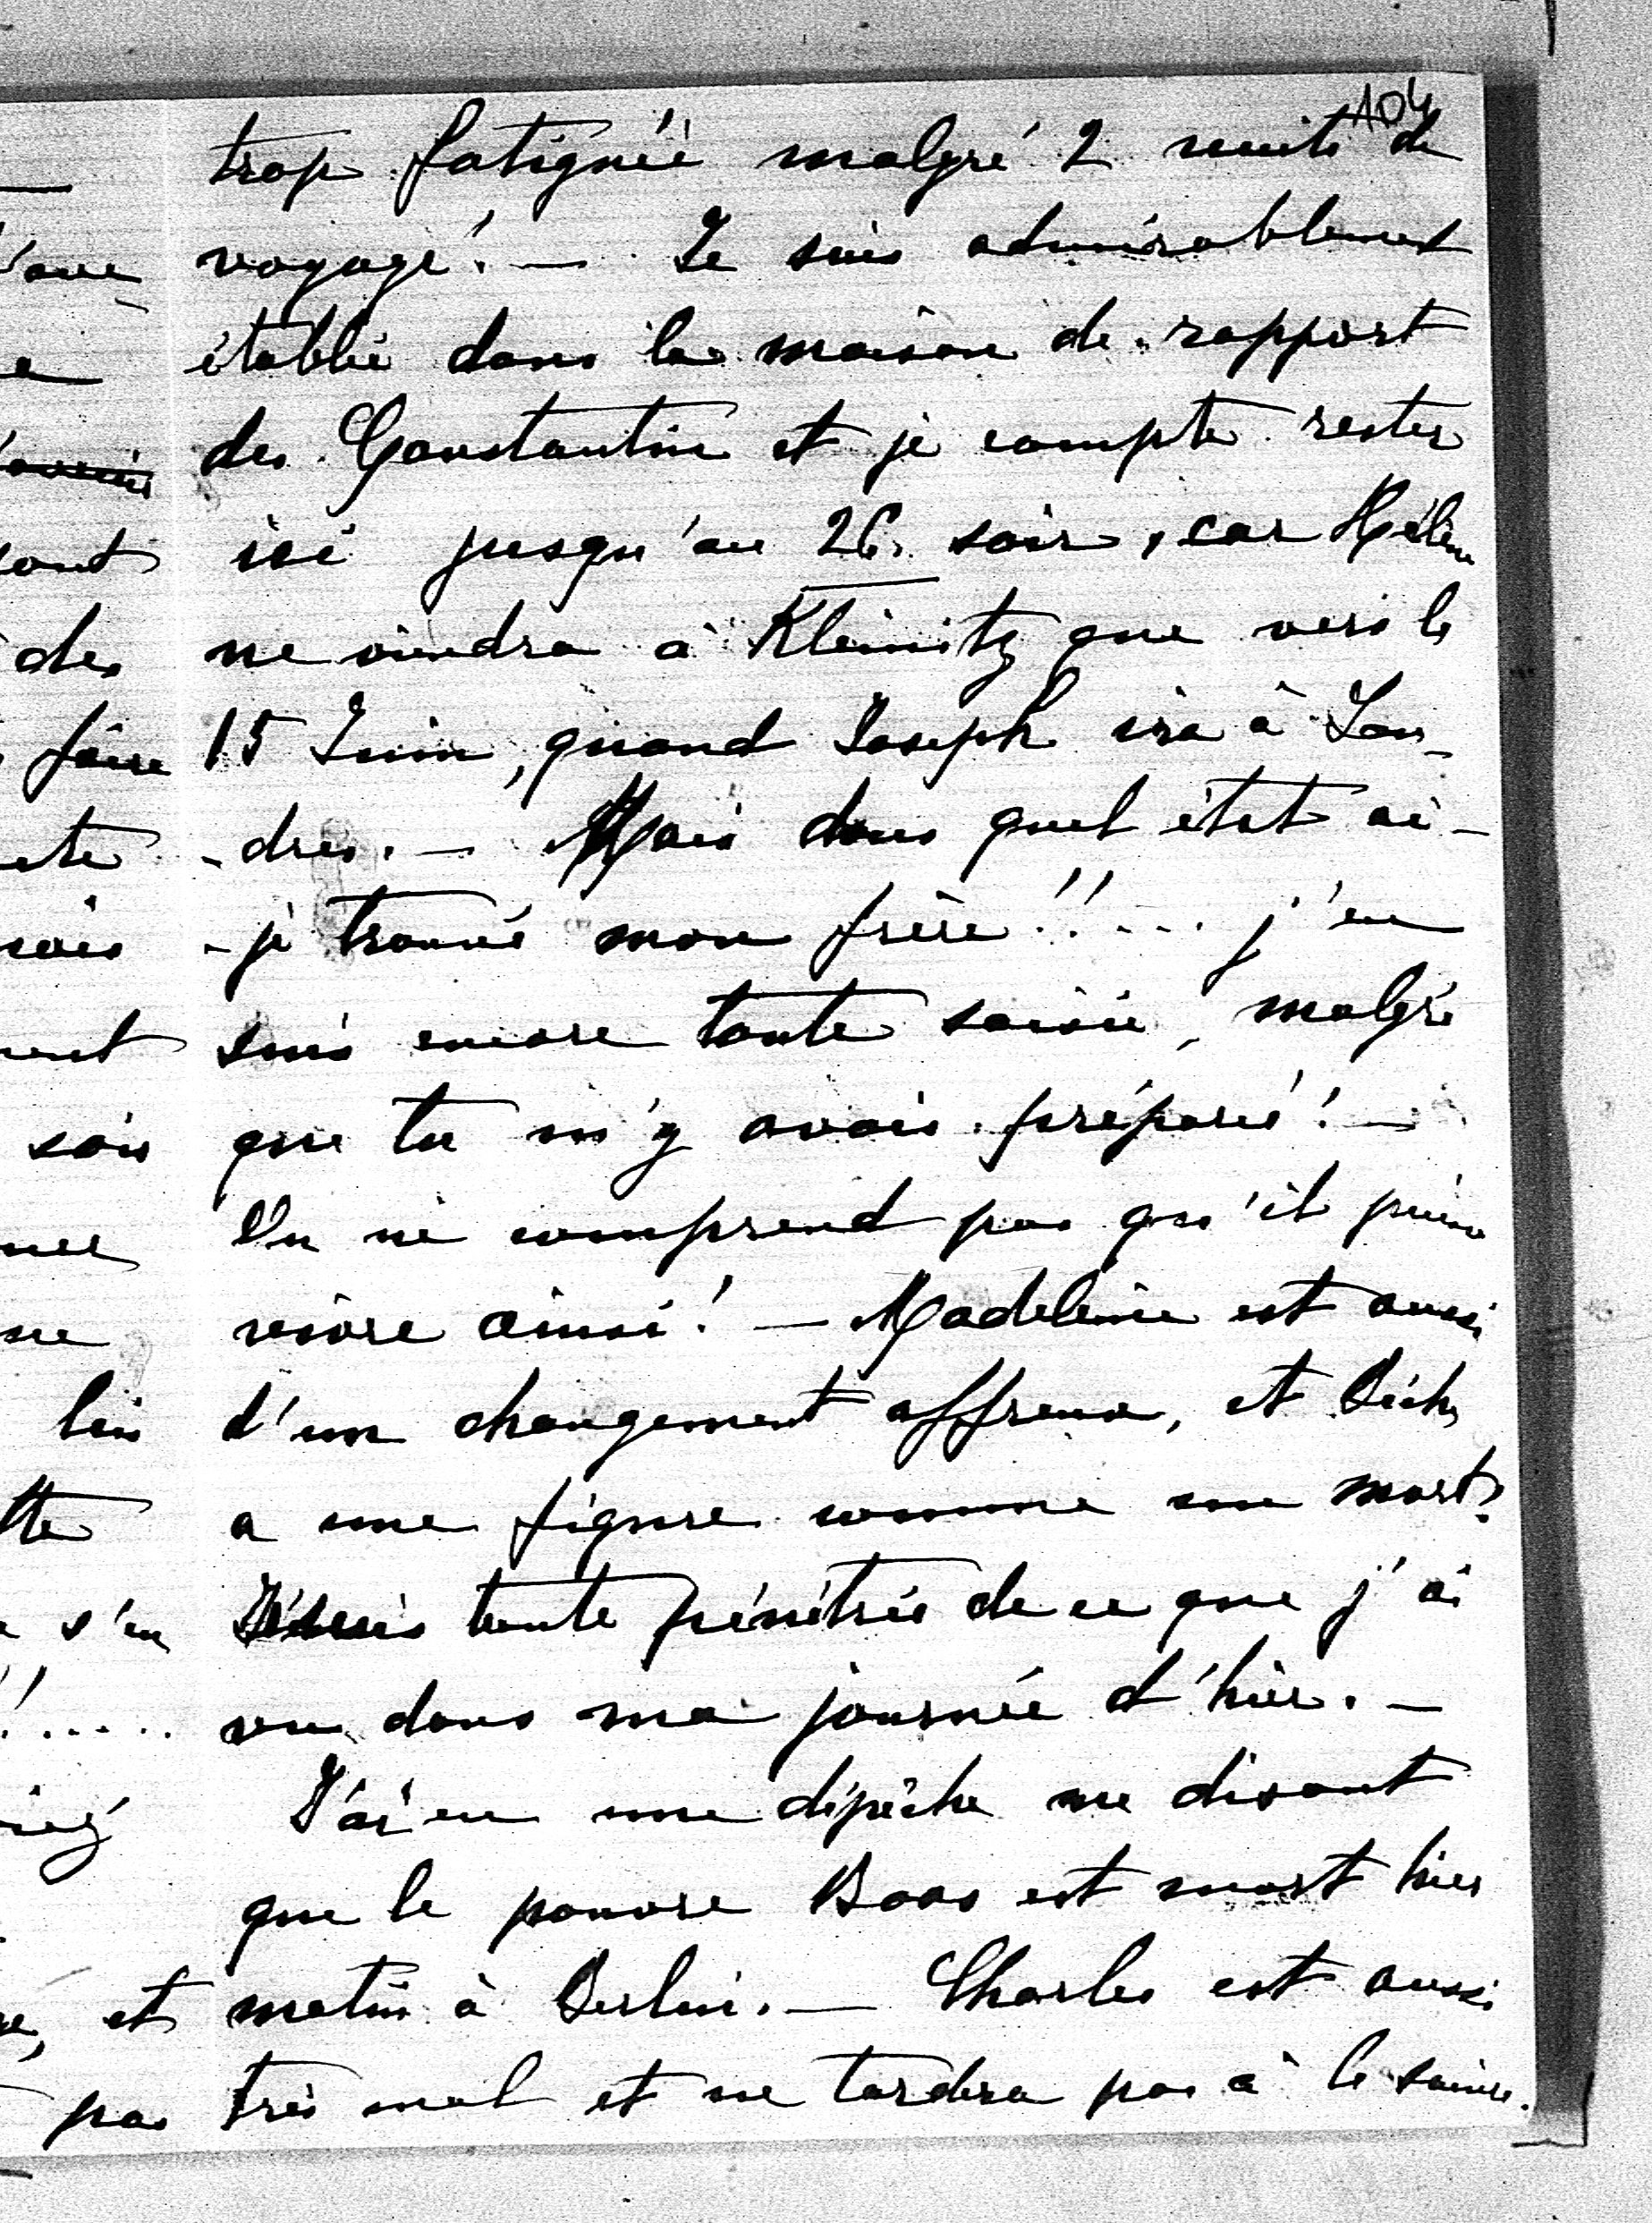 104
trop fatiguée malgré 2 nuits de
voyage! — Je suis admirablement
établie dans la maison de rapport
des Constantin et je compte rester
ici jusqu'au 26 soir, car Hélène
ne viendra à Kleinitz que vers le
15 Juin, quand Joseph ira à Lon-
-dres. — Mais dans quel état ai-
-je trouvé mon frère!!.... j'en
suis encore toute saisie, malgré
que tu m'y avais préparé! —
On ne comprend pas qu'il puisse
vivre ainsi! — Madeleine est aussi
d'un changement affreux, et Bichy
a une figure comme un mort?
Je suis toute pénétrée de ce que j'ai
vu dans ma journée d'hier. —
J'ai eu une dépêche me disant
que le pauvre Boos est mort hier
matin à Berlin. — Charles est aussi
très mal et ne tardera pas à le suivre.